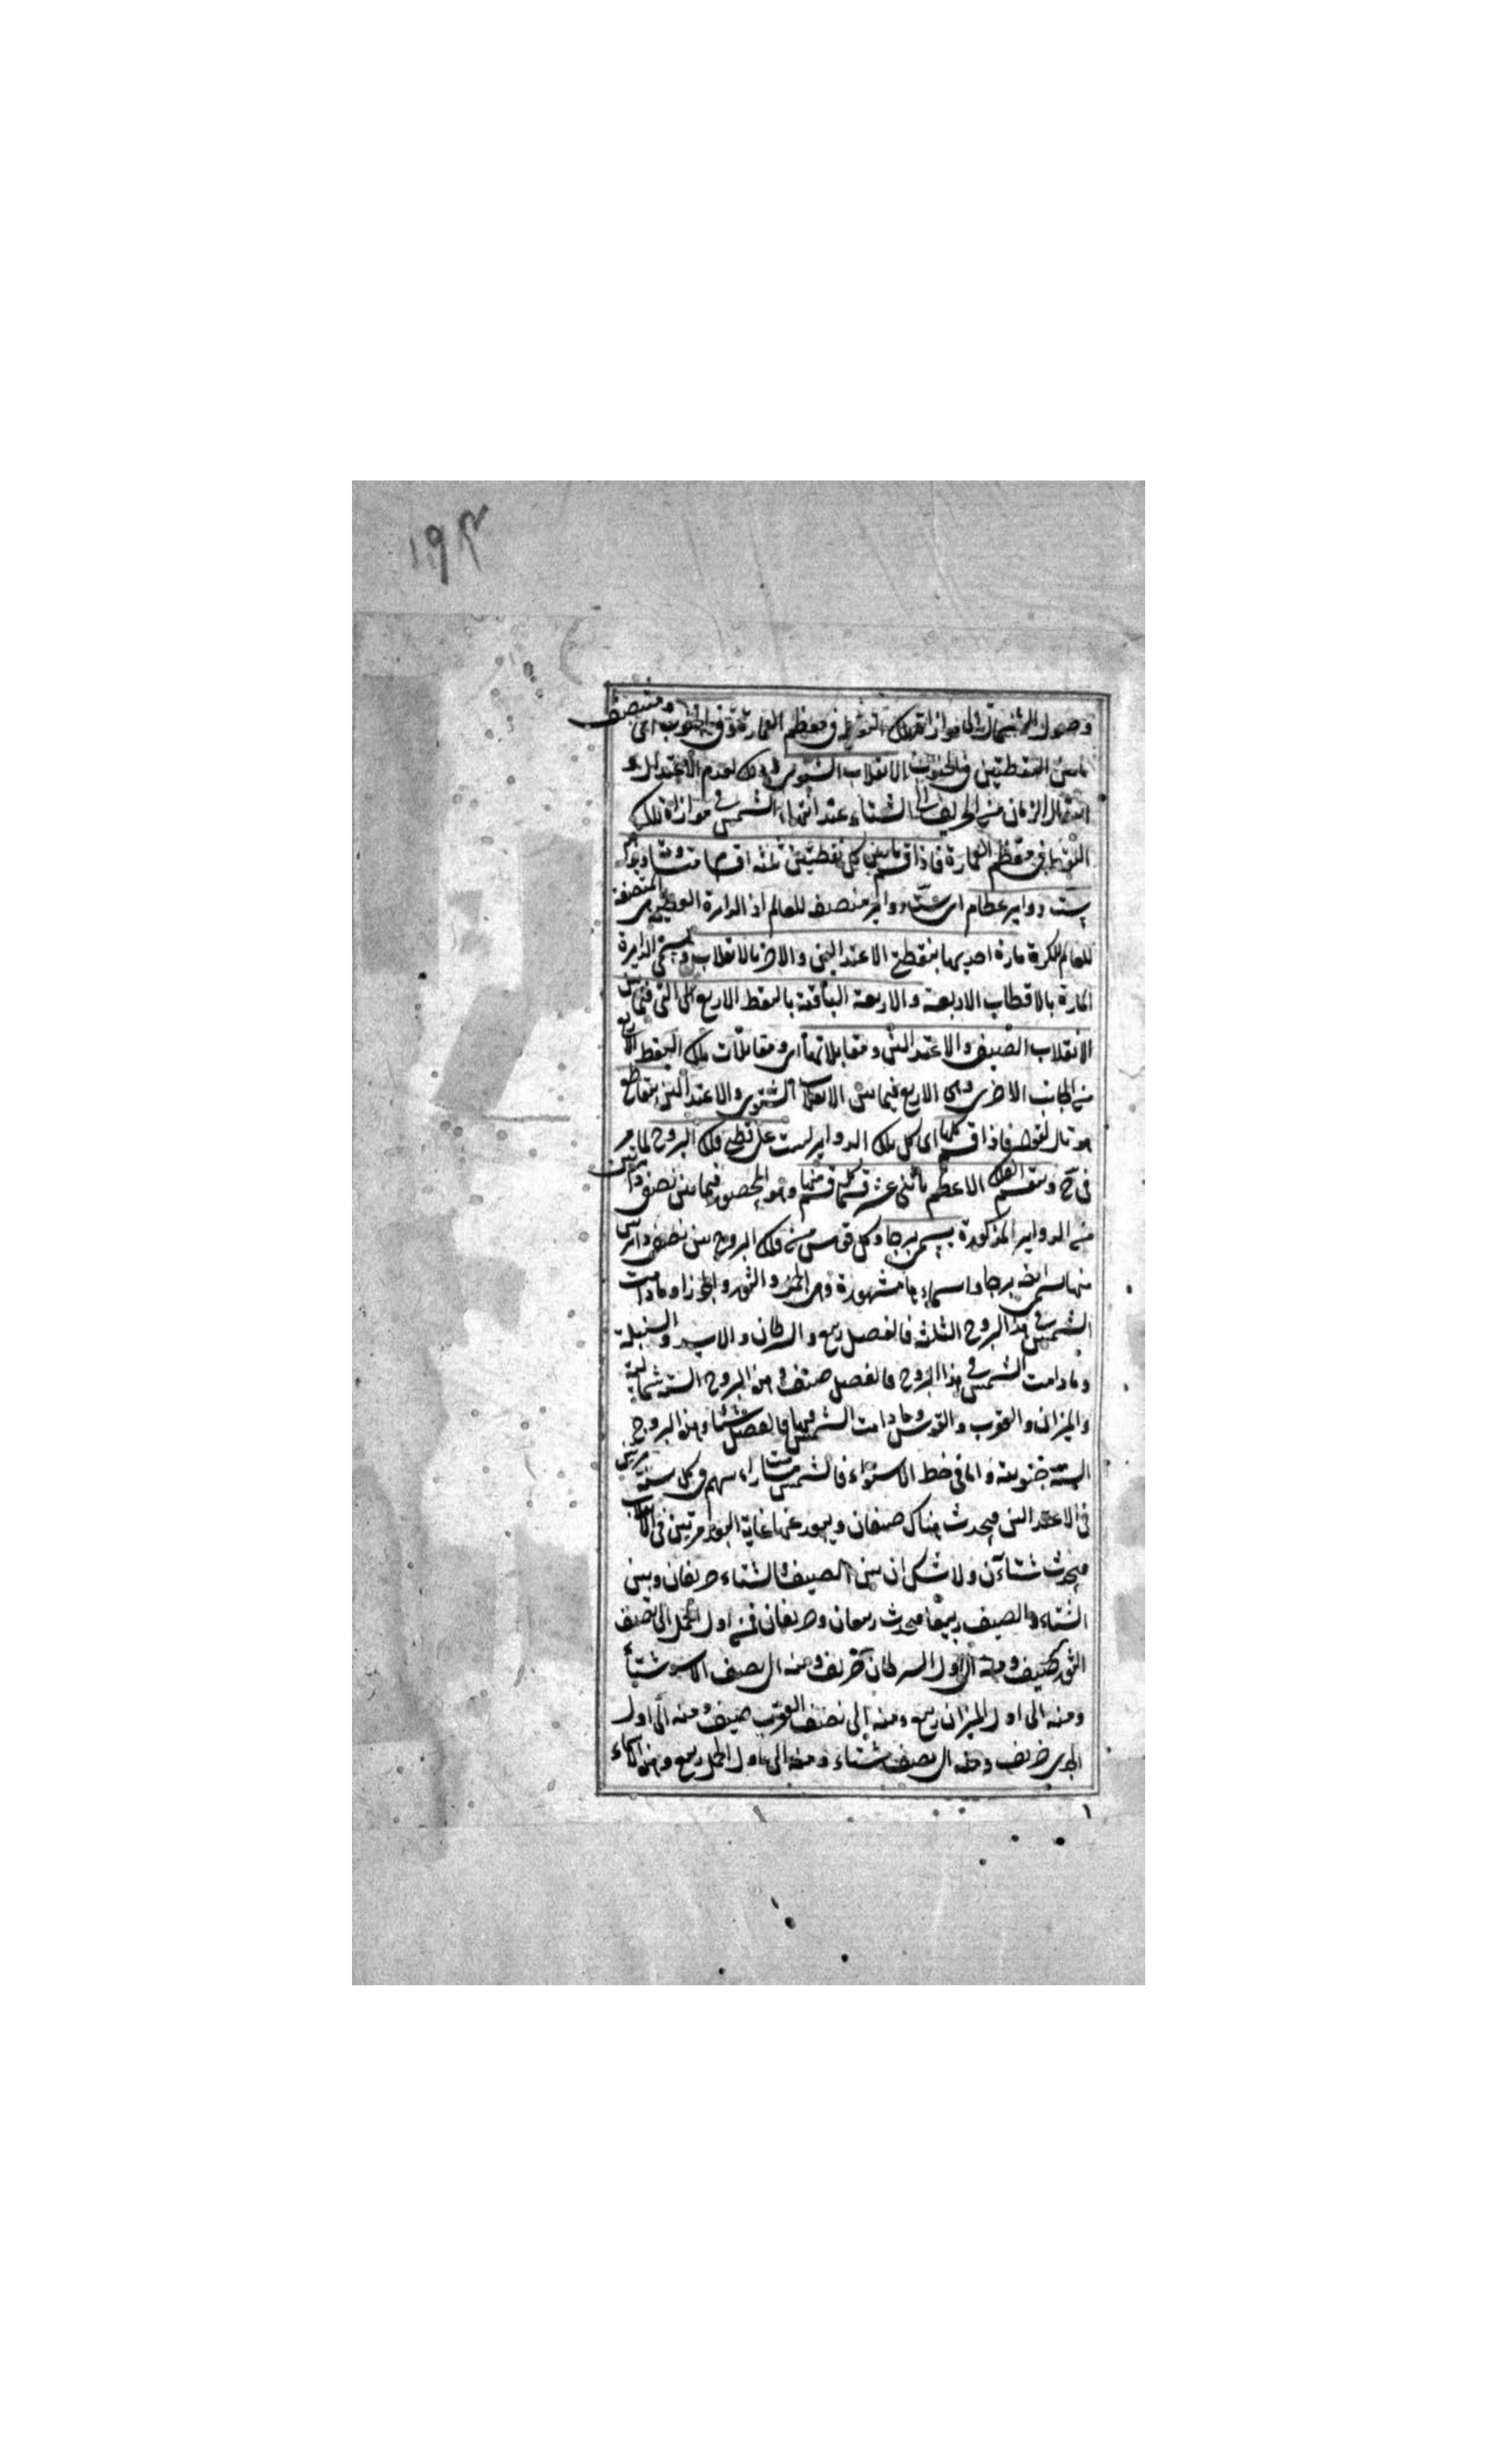 ١٩٣
وصول الشمس الى موازاة تلك النقطة في معظم العمارة وفي الجنوب اى ومنتصف
ما بين النقطتين في الجنوب بالانقلاب الشتوى وذلك لعدم الاعتدال و
انتقال الزمان من الخريف الى الشتاء عند انتهاء الشمس في موازاة تلك
النقطة في معظم العمارة فاذا قسم ما بين كل نقطتين ثلثة اقسام متساوية
بست دواير عظام اى ستة دواير منصف للعالم اذ الدايرة العظيمة هى المنصفة
للعالم للكرة مارة احديها بنقطتى الاعتدالين والاخر بالانقلابين وهى الدايرة
المارة بالاقطاب الاربعة والاربعة الباقية بالنقط الاربع اى التى فيما بين
الانقلاب الصيفى والاعتدالين ومقابلاتها اى ومقابلات تلك النقط الاربع
من الجانب الاخرى وهى الاربع فيما بين الانقلاب الشتوى والاعتدالين بتقاطع
فاذا قسم كلها اى كل تلك الدواير ليست على قطبى فلك البروج لما مر
في وينقسم الفلك الاعظم باثنى عشر قسما كل قسم منها وهو المحصور فيما بين نصفى دايرتين
من الدواير المذكورة يسمى برجا وكل قوس من فلك البروج بين نصفى دايرتين
منها يسمى ايضه برجا واسماء ها مشهورة وهى الحمل والثور والجوزاء وما دامت
الشمس في هذا البروج الثلثة فالفصل ربيع والسرطان والاسد والسنبلة
وما دامت الشمس في هذا البروج فالفصل صيف وهذه البروج الستة شمالية
والميزان والعقرب والقوس وما دامت الشمس فيها فالفصل شتاء وهذه البروج
الستة جنوبية واما في خط الاستواء فالشمس تسامت رءوسهم في كل سنة مرتين
في الاعتدالين فيحدث هناك صيفان ويبعد عنها غاية البعد مرتين في الانقلابين
فيحدث شتاءان ولا شك ان بين الصيف والشتاء خريفان وبين
الشتاء والصيف ربيعا فيحدث ربيعان وخريفان فمن اول الحمل الى نصف
الثور صيف ومنه الى اول السرطان خريف ومنه الى نصف الاسد شتاء
ومنه الى اول الميزان ربيع ومنه الى نصف العقرب صيف ومنه الى اول
الجدى خريف ومنه الى نصف شتاء ومنه الى اول الحمل ربيع وهذه الاسماء